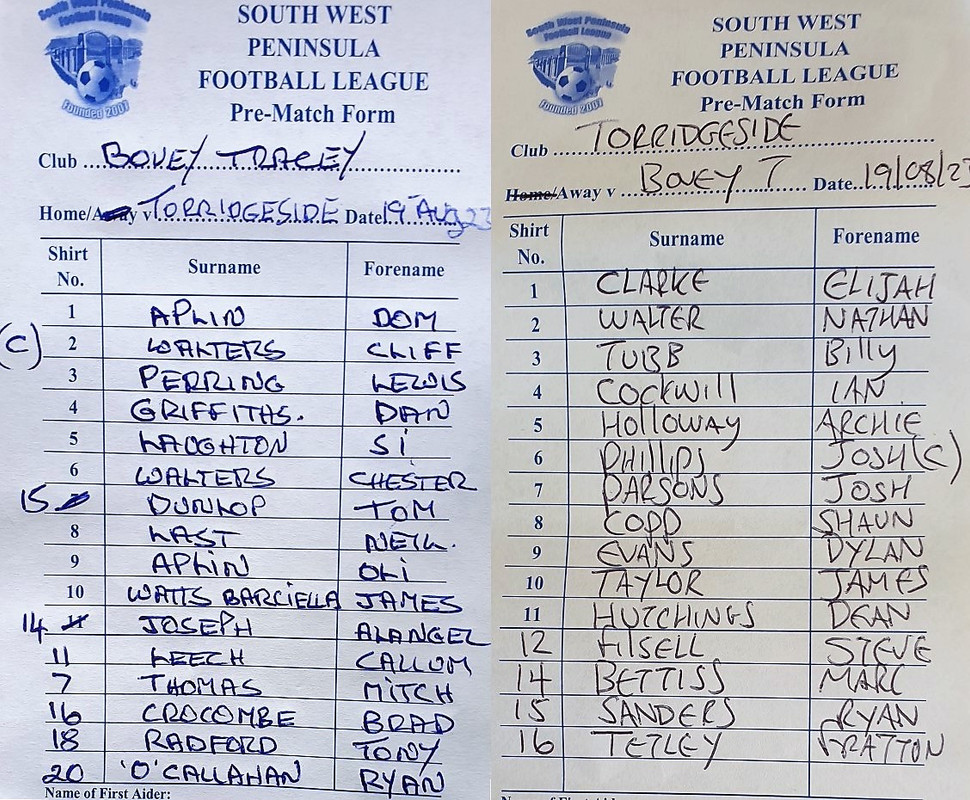 South West Peninsula
Football League
Founded 2007
SOUTH WEST
PENINSULA
FOOTBALL LEAGUE
Pre-Match Form
Club BOVEY TRACEY
Home/Away v TORRIDGESIDE Date 19 Aug 23
Shirt No. Surname Forename
1 APLIN DOM
(C) 2 WALTERS CLIFF
3 PERRING LEWIS
4 GRIFFITHS. DAN
5 LAUGHTON Si
6 WALTERS CHESTER
15 DUNLOP TOM
8 LAST NEIL.
9 APLIN OLI
10 WATTS BARCIELLA JAMES
14 JOSEPH ALANGEL
11 LEECH CALLUM
7 THOMAS MITCH
16 CROCOMBE BRAD
18 RADFORD TONY
20 'O'CALLAHAN RYAN
Name of First Aider:
South West Peninsula
Football League
Founded 2007
SOUTH WEST
PENINSULA
FOOTBALL LEAGUE
Pre-Match Form
Club TORRIDGESIDE
Home/Away v BOVEY T Date 19/08/23
Shirt No. Surname Forename
1 CLARKE ELIJAH
2 WALTER NATHAN
3 TUBB Billy
4 COCKWILL IAN.
5 Holloway ARCHIE
6 PHILLIPS JOSH (C)
7 PARSONS JOSH
8 COPP SHAUN
9 EVANS DYLAN
10 TAYLOR JAMES
11 HUTCHINGS DEAN
12 HISELL STEVE
14 BETTISS MARC
15 SANDERS RYAN
16 TETLEY GRATTON